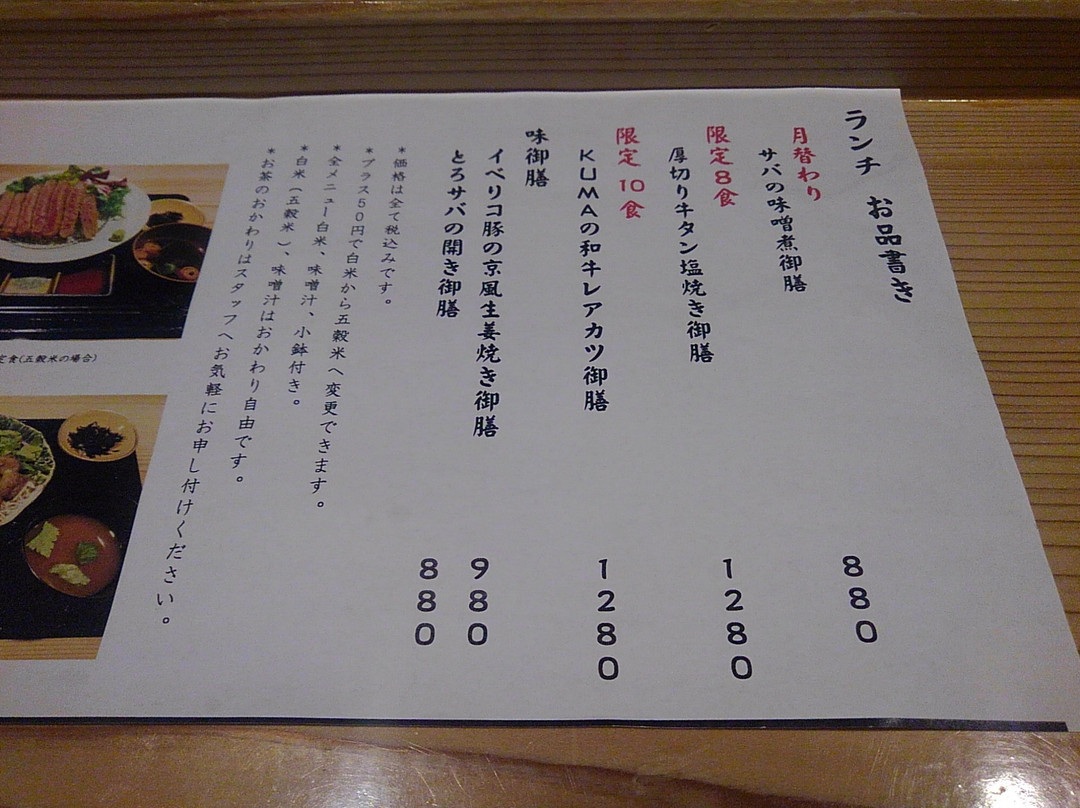 ランチ お品書き
月替わり
サバの味噌煮御膳 880
限定8食
厚切り牛タン塩焼き御膳 1280
限定10食
KUMAの和牛レアカツ御膳 1280
味御膳
イベリコ豚の京風生姜焼き御膳 980
とろサバの開き御膳 880
*価格は全て税込みです。
*プラス50円で白米から五穀米へ変更できます。
*全メニュー白米、味噌汁、小鉢付き。
*白米(五穀米)、味噌汁はおかわり自由です。
*お茶のおかわりはスタッフへお気軽にお申し付けください。
定食(五穀米の場合)